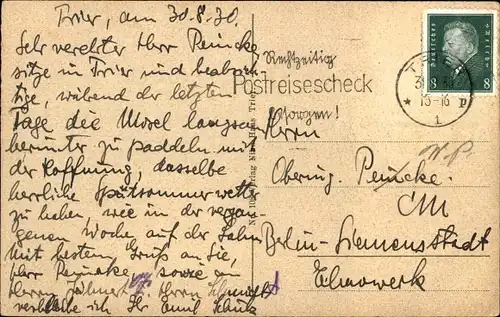 Trier, am 30.8.30.
Sehr verehrter Herr Peincke
sitze in Trier und beabsich-
tige, während der letzten
Tage die Mosel langsam
herunter zu paddeln mit
der Hoffnung, dasselbe
herrliche Spätsommerwetter
zu haben, wie in der vergan-
genen Woche auf der Lahn
Mit bestem Gruß an Sie,
Herr Peincke, sowie an
Herrn Herrn
verbleibe ich Ihr Emil
Rechtzeitig
Postreisescheck
besorgen!
TRIER
15-16
1
Deutsches Reich
8 8
Herrn
Obering. Peincke.
W.P.
Berlin-Siemensstadt
Elmowerk